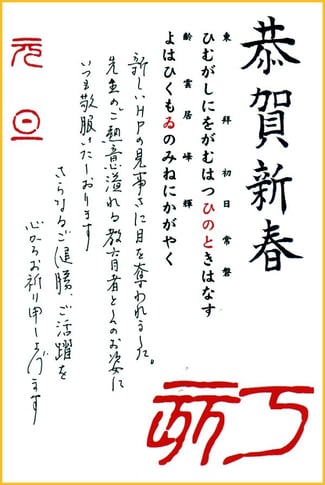 恭賀新春
東 拜 初日 常磐
ひむがしにをがむはつひのときはなす
齢 雲居 峰 輝
よはひくもゐのみねにかがやく
新しいHPの見事さに目を奪われました。
先生のご熱意溢れる教育者としてのお姿に
いつも敬服いたしております
さらなるご健勝、ご活躍を
心からお祈り申し上げます
元旦